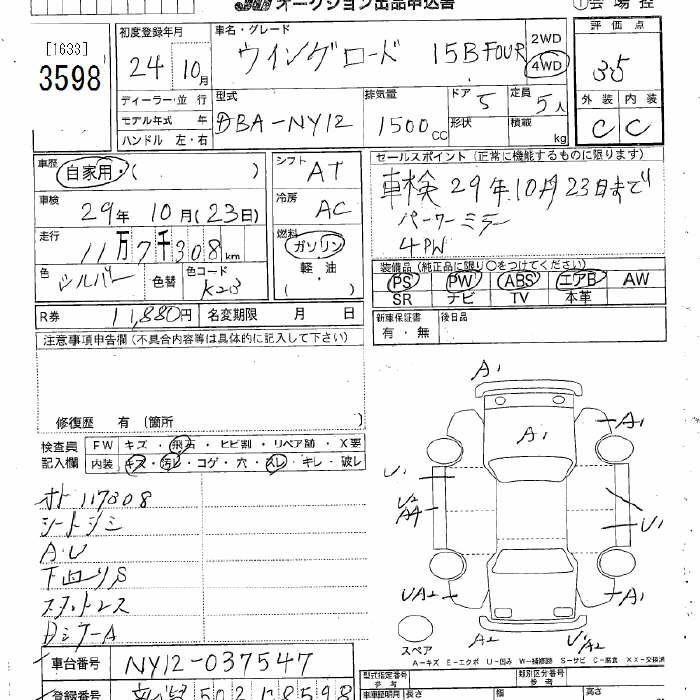 オークション出品申込書
①会場控
[1633]
3598
初度登録年月
24 10月
車名・グレード
ウイングロード 15B FOUR
2WD
4WD
評価点
3.5
外装 内装
C C
ディーラー・並行
モデル年式 年
ハンドル 左・右
型式
DBA-NY12
排気量
1500cc
ドア 5
形状
定員 5人
積載 kg
車歴
自家用・( )
シフト
AT
セールスポイント(正常に機能するものに限ります)
車検 29年10月23日まで
パワーミラー
4PW
車検
29年 10月(23日)
冷房
AC
走行
11万7千308km
燃料
ガソリン
軽・油
( )
色
シルバー
色替
色コード
K23
装備品(純正品に限り〇をつけてください)
PS PW ABS エアB AW
SR ナビ TV 本革
R券 11,880円 名変期限 月 日
新車保証書
有・無
後日品
注意事項申告欄(不具合内容等は具体的に記入して下さい)
修復歴 有(箇所 )
検査員
記入欄
FW キズ・飛石・ヒビ割・リペア跡・X要
内装 キズ・汚レ・コゲ・穴・スレ・キレ・破レ
オト 117308
シートシミ
A.U
下回りS
スタットレス
車台番号 NY12-037547
登録番号
A1
A1
A1
A1
U1
U2
A4
U1
UA2
UA2
A2
U1/A2
スペア
A-キズ E-エクボ U-凹み W-補修跡 S-サビ C-腐食 XX-交換済
型式指定番号
参考
類別区分番号
車輌証明
参考
長さ 幅 高さ